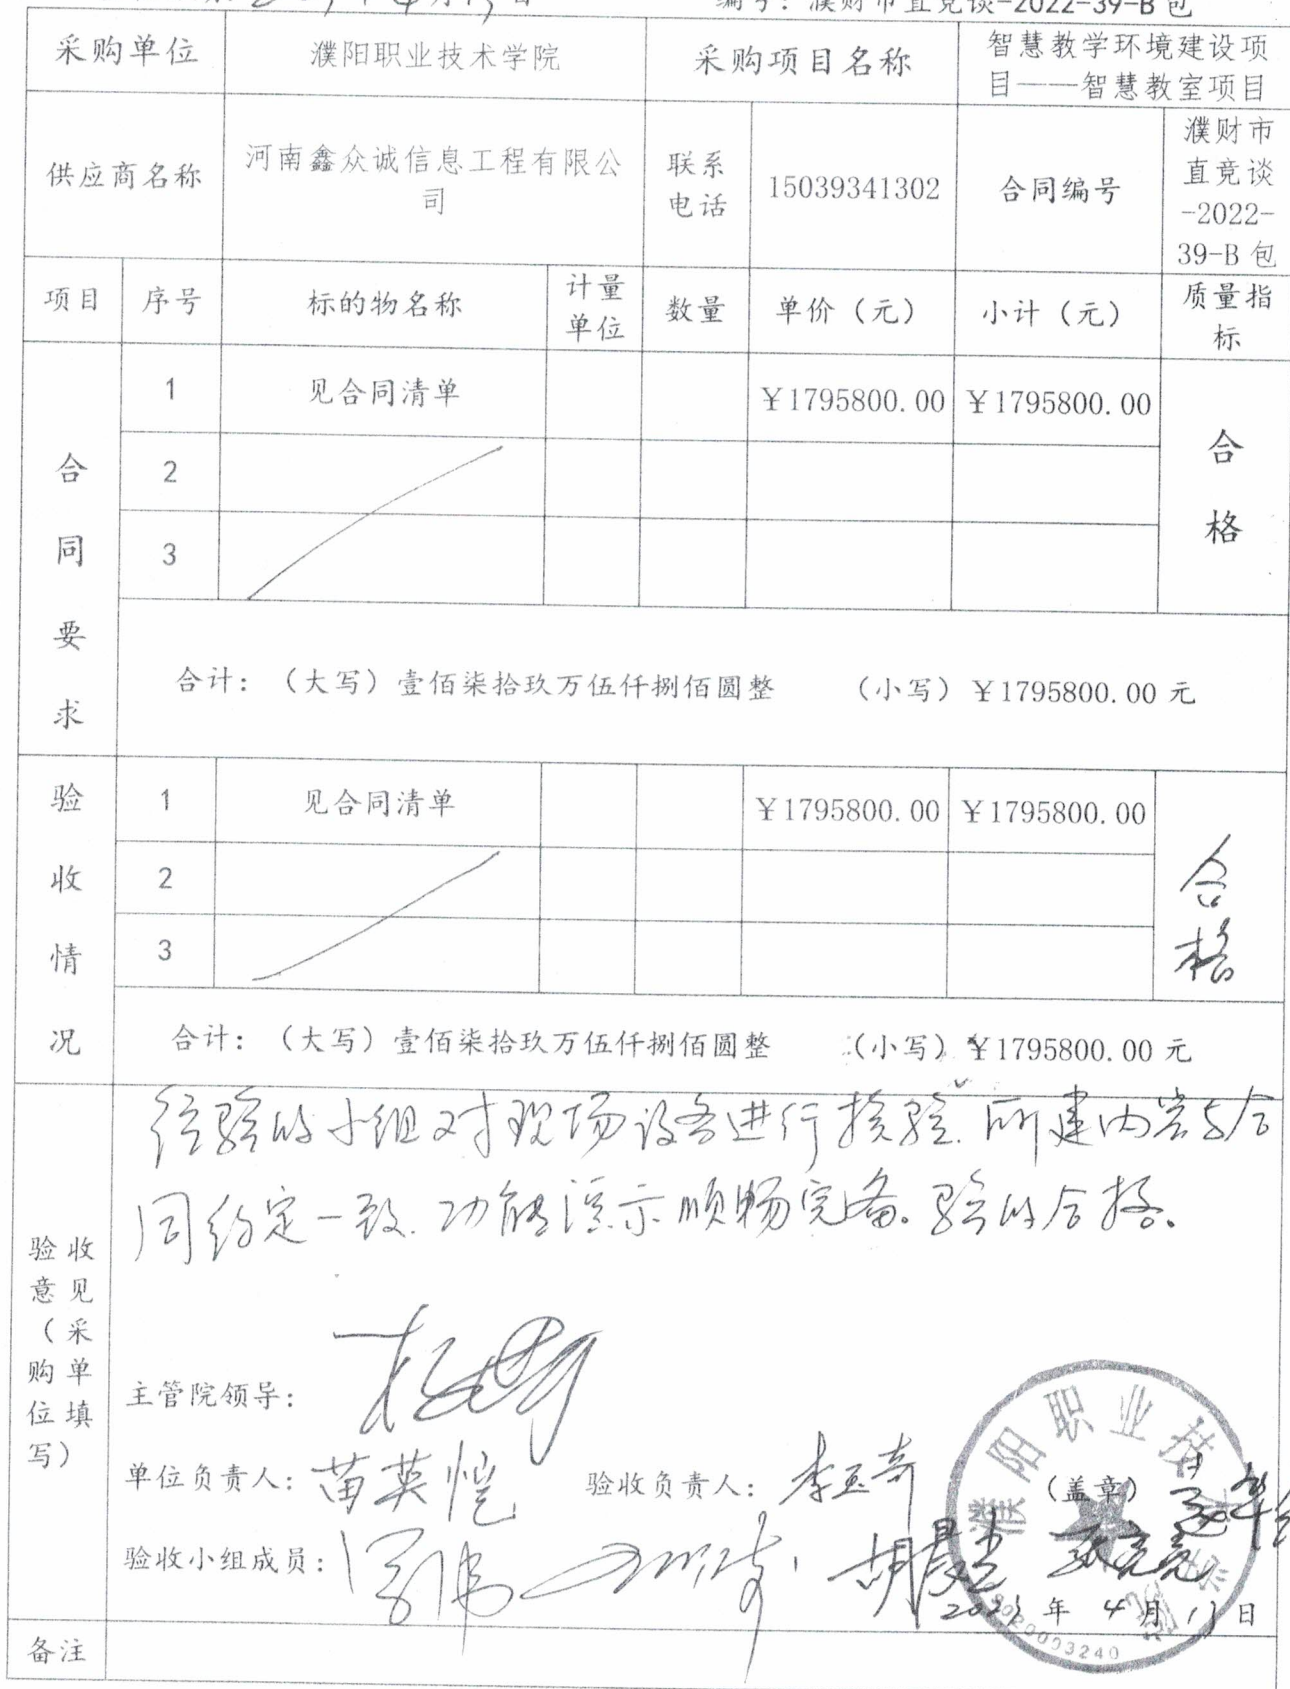 编号：濮财市直竞谈-2022-39-B包
采购单位 濮阳职业技术学院 采购项目名称 智慧教学环境建设项
目——智慧教室项目
供应商名称 河南鑫众诚信息工程有限公
司
联系
电话
15039341302
合同编号
濮财市
直竞谈
-2022-
39-B包
项目 序号 标的物名称 计量
单位
数量 单价（元） 小计（元） 质量指
标
合同要求
1 见合同清单 ￥1795800.00 ￥1795800.00
2
3
合格
合计：（大写）壹佰柒拾玖万伍仟捌佰圆整 （小写）￥1795800.00元
验收情况
1 见合同清单 ￥1795800.00 ￥1795800.00
2
3
合格
合计：（大写）壹佰柒拾玖万伍仟捌佰圆整 （小写）￥1795800.00元
验收
意见
（采
购单
位填
写）
经验收小组对现场设备进行核验.所建内容与合
同约定一致.功能演示顺畅完备。验收合格。
主管院领导：
单位负责人：苗英恺 验收负责人：李玉奇 （盖章）
验收小组成员： 胡晨光
2023年4月 日
濮阳职业技
3240
备注